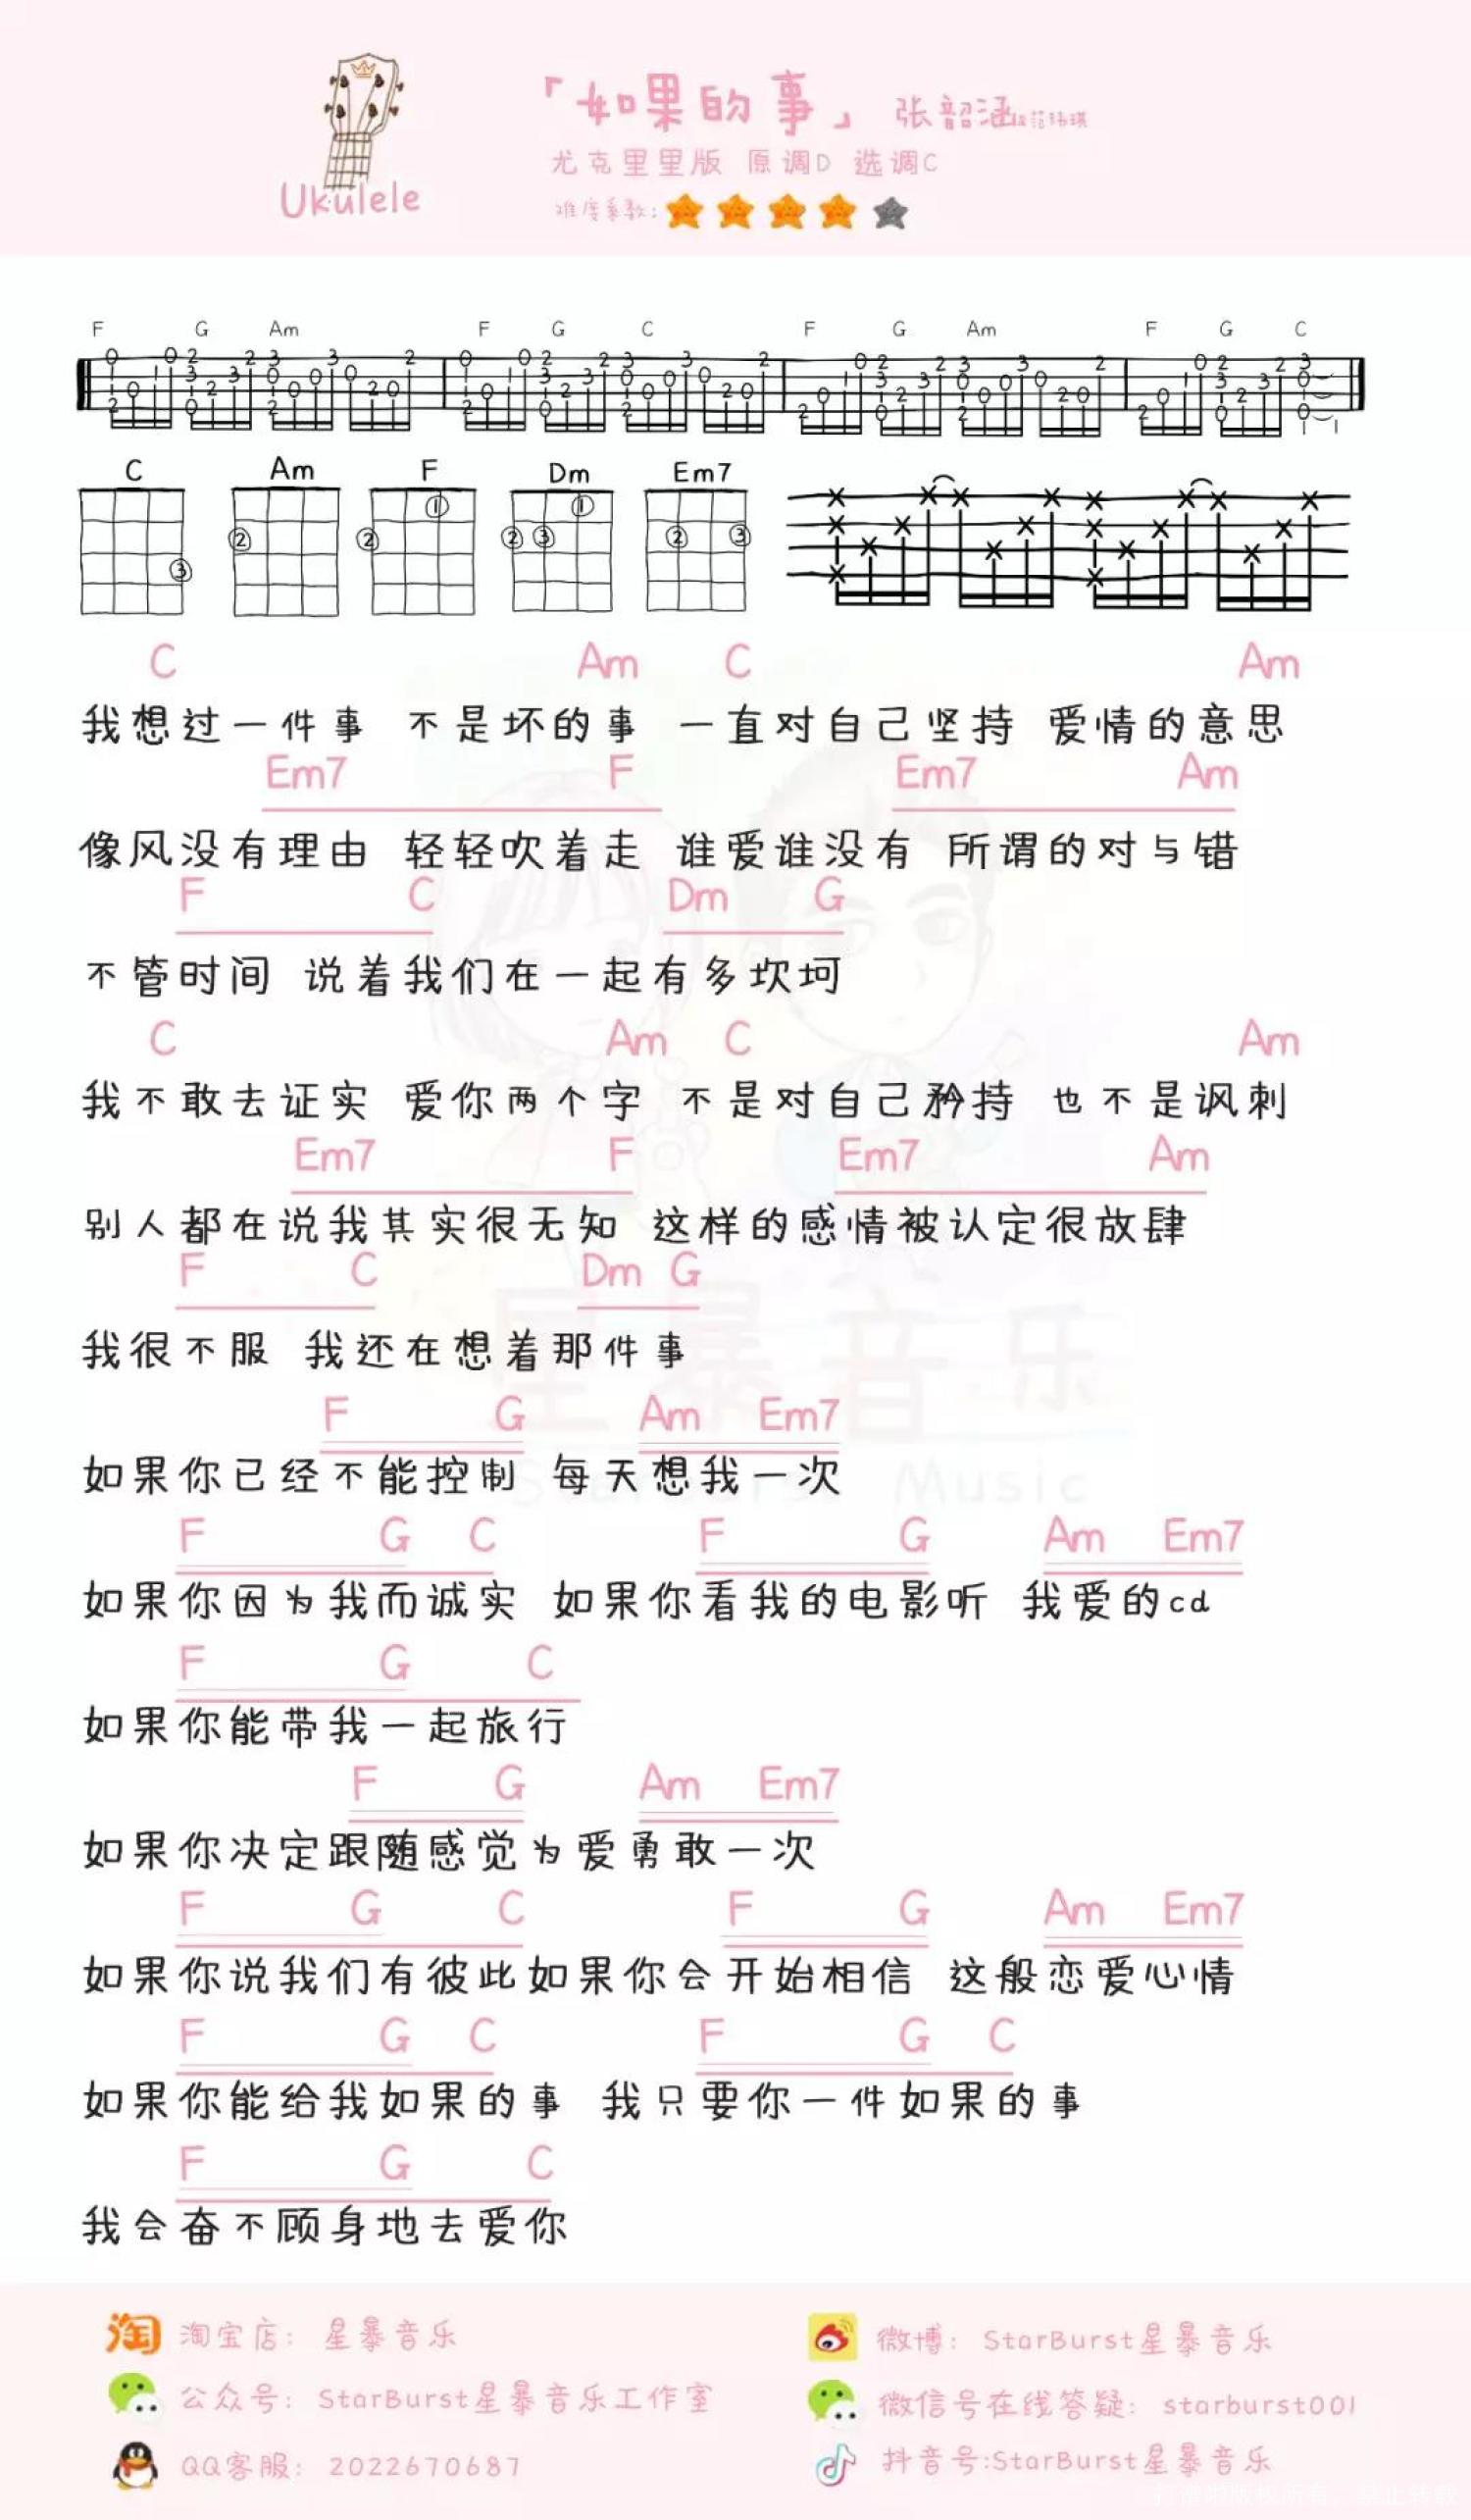 「如果的事」 张韶涵&范玮琪
Ukulele
尤克里里版 原调D 选调C
难度系数:
F G Am F G C F G Am F G C
C Am F Dm Em7
C Am C Am
我想过一件事 不是坏的事 一直对自己坚持 爱情的意思
Em7 F Em7 Am
像风没有理由 轻轻吹着走 谁爱谁没有 所谓的对与错
F C Dm G
不管时间 说着我们在一起有多坎坷
C Am C Am
我不敢去证实 爱你两个字 不是对自己矜持 也不是讽刺
Em7 F Em7 Am
别人都在说我其实很无知 这样的感情被认定很放肆
F C Dm G
我很不服 我还在想着那件事
F G Am Em7
如果你已经不能控制 每天想我一次
F G C F G Am Em7
如果你因为我而诚实 如果你看我的电影听 我爱的cd
F G C
如果你能带我一起旅行
F G Am Em7
如果你决定跟随感觉为爱勇敢一次
F G C F G Am Em7
如果你说我们有彼此如果你会开始相信 这般恋爱心情
F G C F G C
如果你能给我如果的事 我只要你一件如果的事
F G C
我会奋不顾身地去爱你
星暴音乐
Starburst Music
淘宝店: 星暴音乐
微博: StarBurst星暴音乐
公众号: StarBurst星暴音乐工作室
微信号在线答疑: starburst001
QQ客服: 2022670687
抖音号:StarBurst星暴音乐